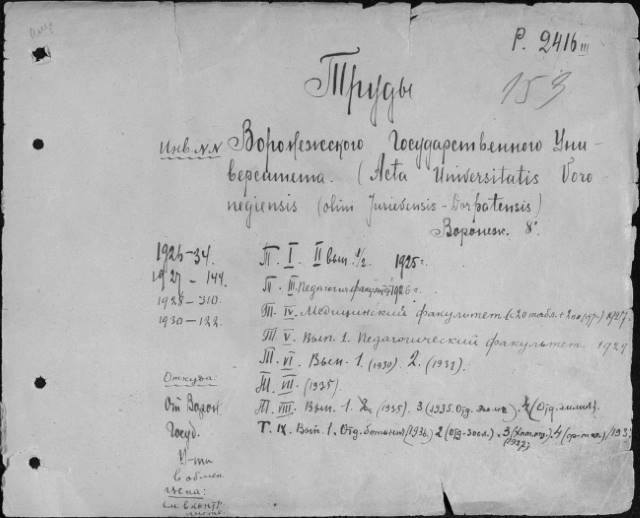 Р. 2416 III
153
Труды
Инв. N.N Воронежского Государственного Уни-
верситета. (Acta Universitatis Voro
negiensis (olim Jurievensis-Dorpatensis)
Воронеж. 8°.
1926-34. Т. I. II вып. 1/2. 1925г.
1927 - 144. Т. III. Педагогич. факульт. 1926 г.
1928 - 310. Т. IV. Медицинский факультет 1927.
1930 - 122. Т. V. Вып. 1. Педагогический факультет. 1929
Т. VI. Вып. 1. (1930). 2. (1932).
Откуда: Т. VII. (1935).
От Ворон. Т. VIII. Вып. 1. 2. (1935). 3 (1935. Отд. ). 4 (Отд. химия).
Госуд. Т. IX. Вып. 1. Отд. ботаник (1936) 2 (Отд. зоол.). 3 (1937) 4
У-та
в обмен
Цена:
см. в контр.
листе